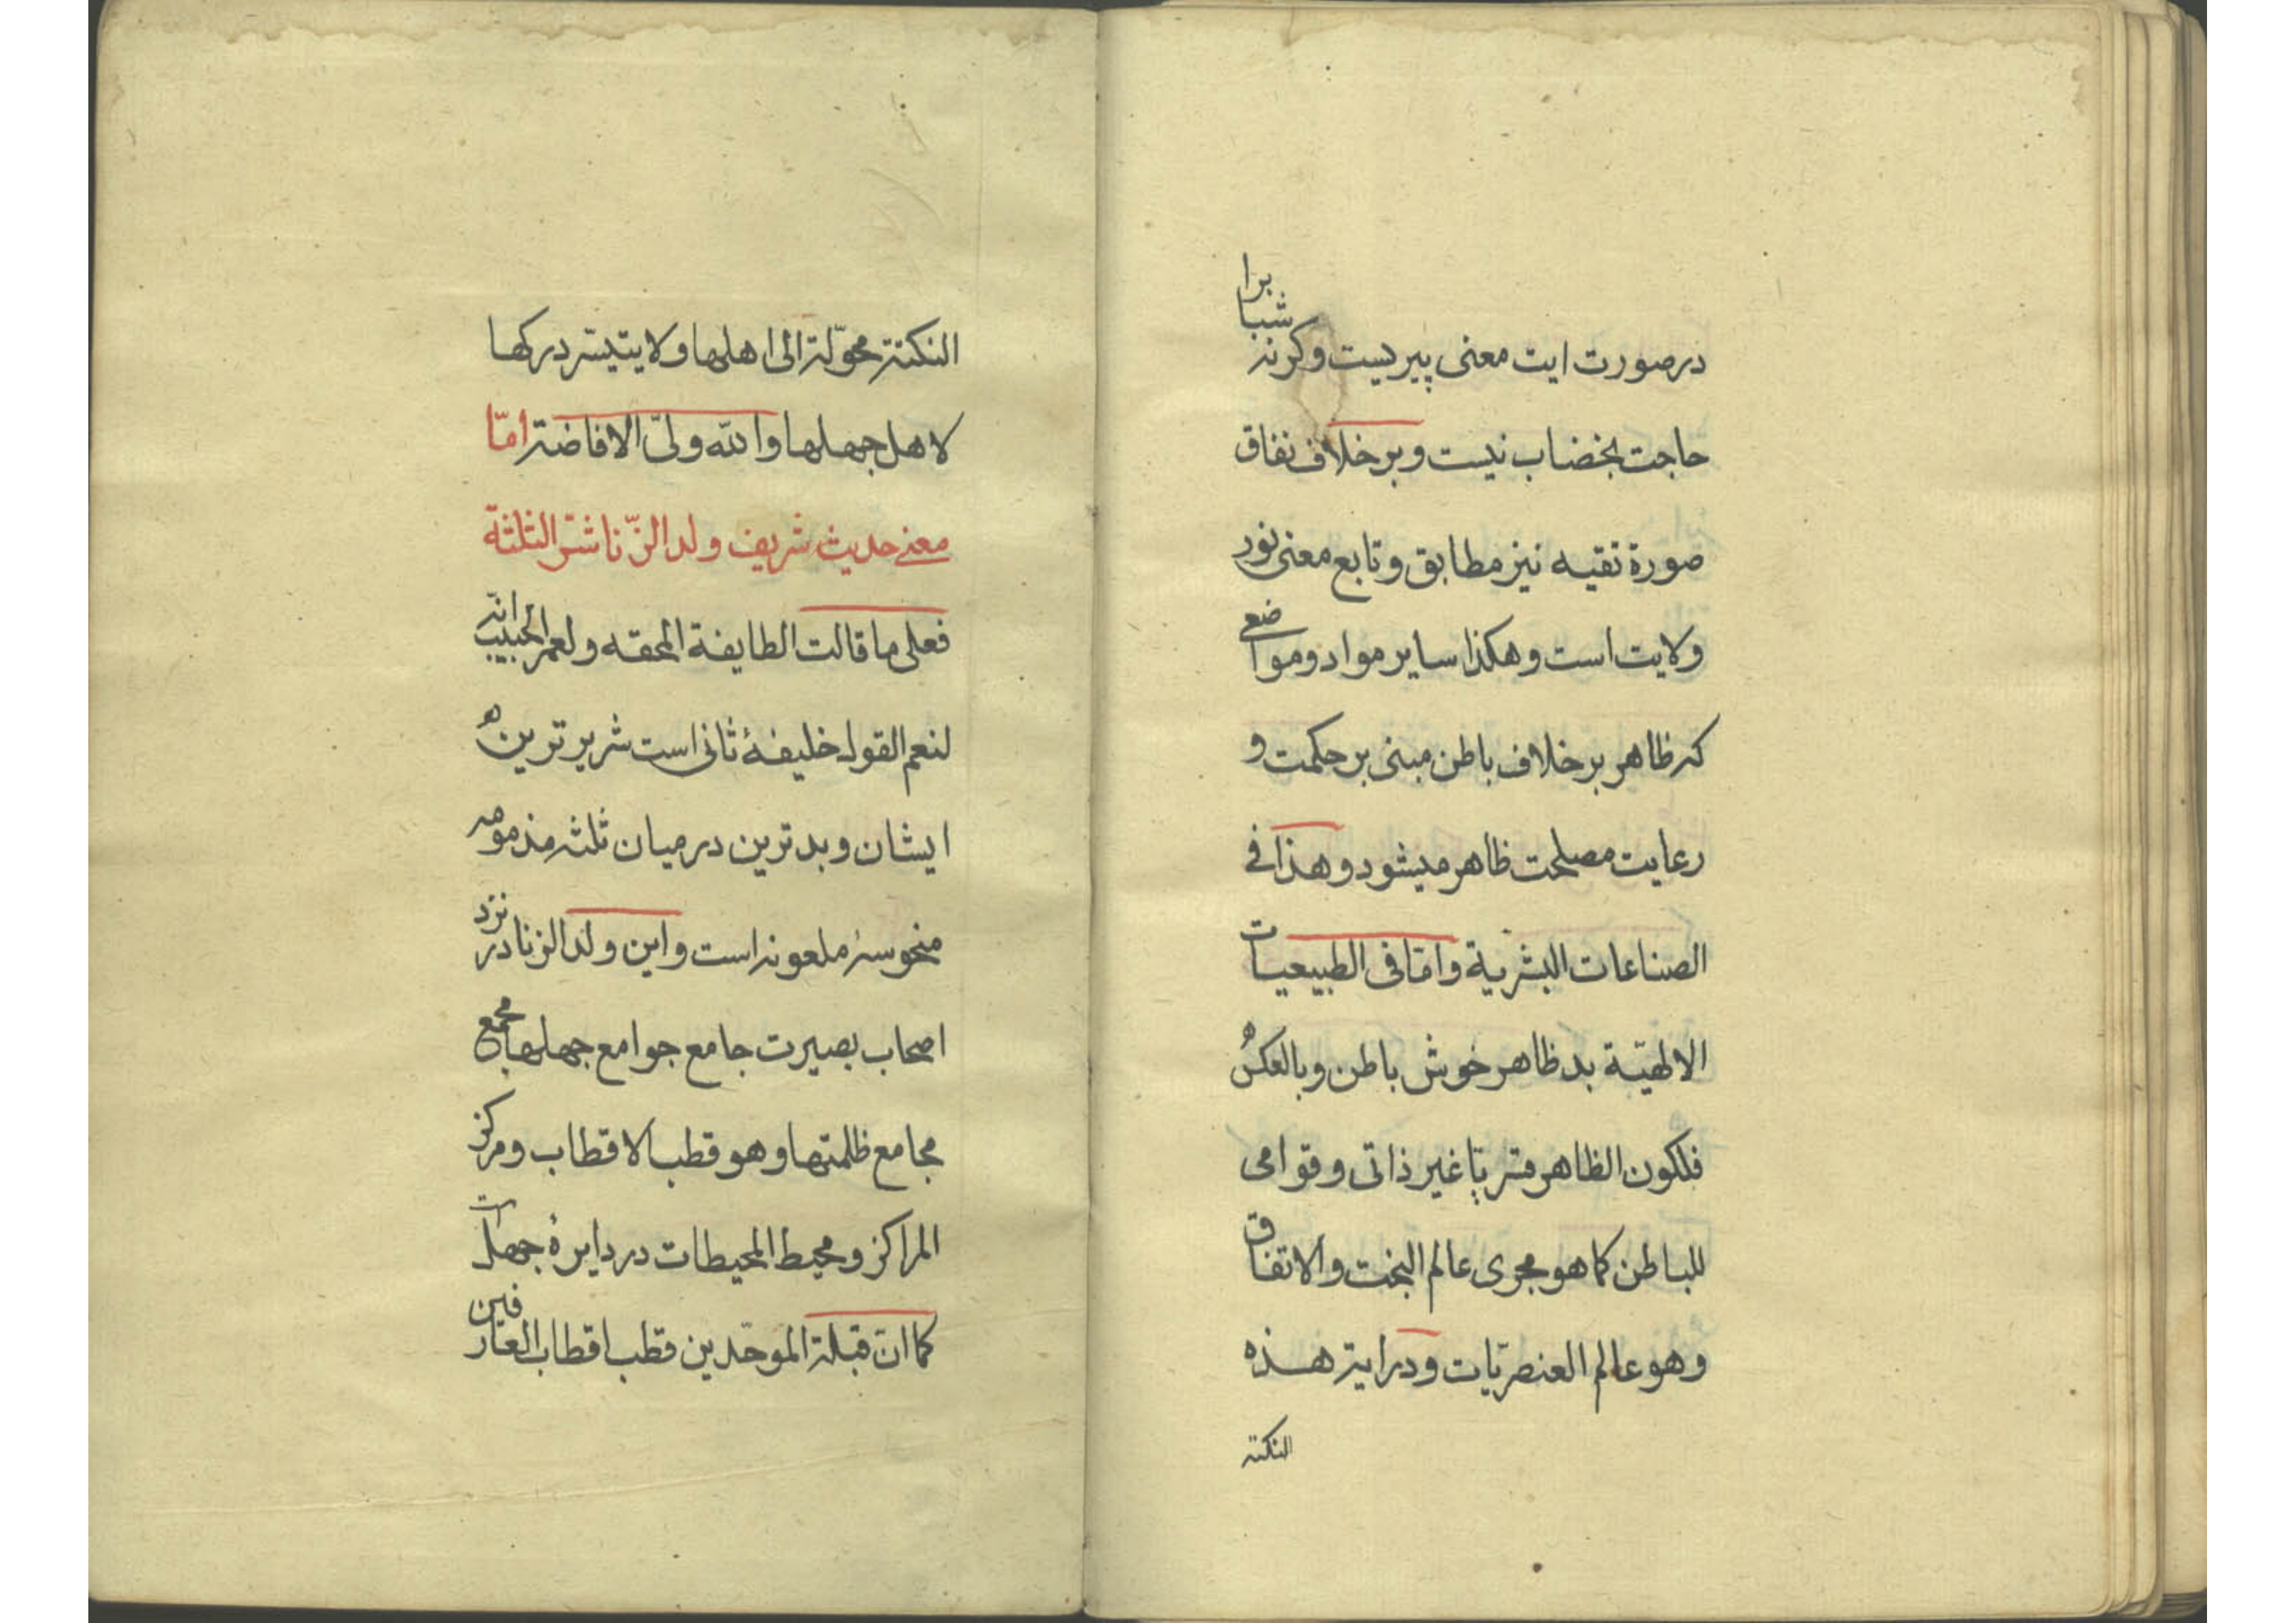 درصورت ایت معنی پیریست وکرنه شبابرا
حاجت بخضاب نیست و برخلاف نفاق
صورة تقیه نیز مطابق و تابع معنی نور
ولایت است و هکذا سایر مواد و مواضع
که ظاهر برخلاف باطن مبنی بر حکمت و
رعایت مصلحت ظاهر میشود و هذا فی
الصناعات البشریة و امّا فی الطبیعیات
الالهیّة بد ظاهر خوش باطن و بالعکس
فلکون الظاهر قشریّا غیر ذاتی و قوامی
للباطن کما هو مجری عالم البخت والاتفاق
وهو عالم العنصریّات و درایة هذه
النکتة
النکتة محوّلة الی اهلها و لا یتیسّر درکها
لاهل جهلها والله ولیّ الافاضة امّا
معنی حدیث شریف ولد الزّنا شرّ الثلثة
فعلی ما قالت الطایفة المحقه و لعمر الحبیب انّه
لنعم القول خلیفهٔ ثانی است شریر ترین
ایشان و بد ترین در میان ثلثه مذمومه
منحوسهٔ ملعونه است و این ولد الزنا در نزد
اصحاب بصیرت جامع جوامع جهلها مجمع
مجامع ظلمتها و هو قطب الاقطاب و مرکز
المراکز و محیط المحیطات در دایرهٔ جهلات
کما انّ قبلة الموحّدین قطب اقطاب العارفین